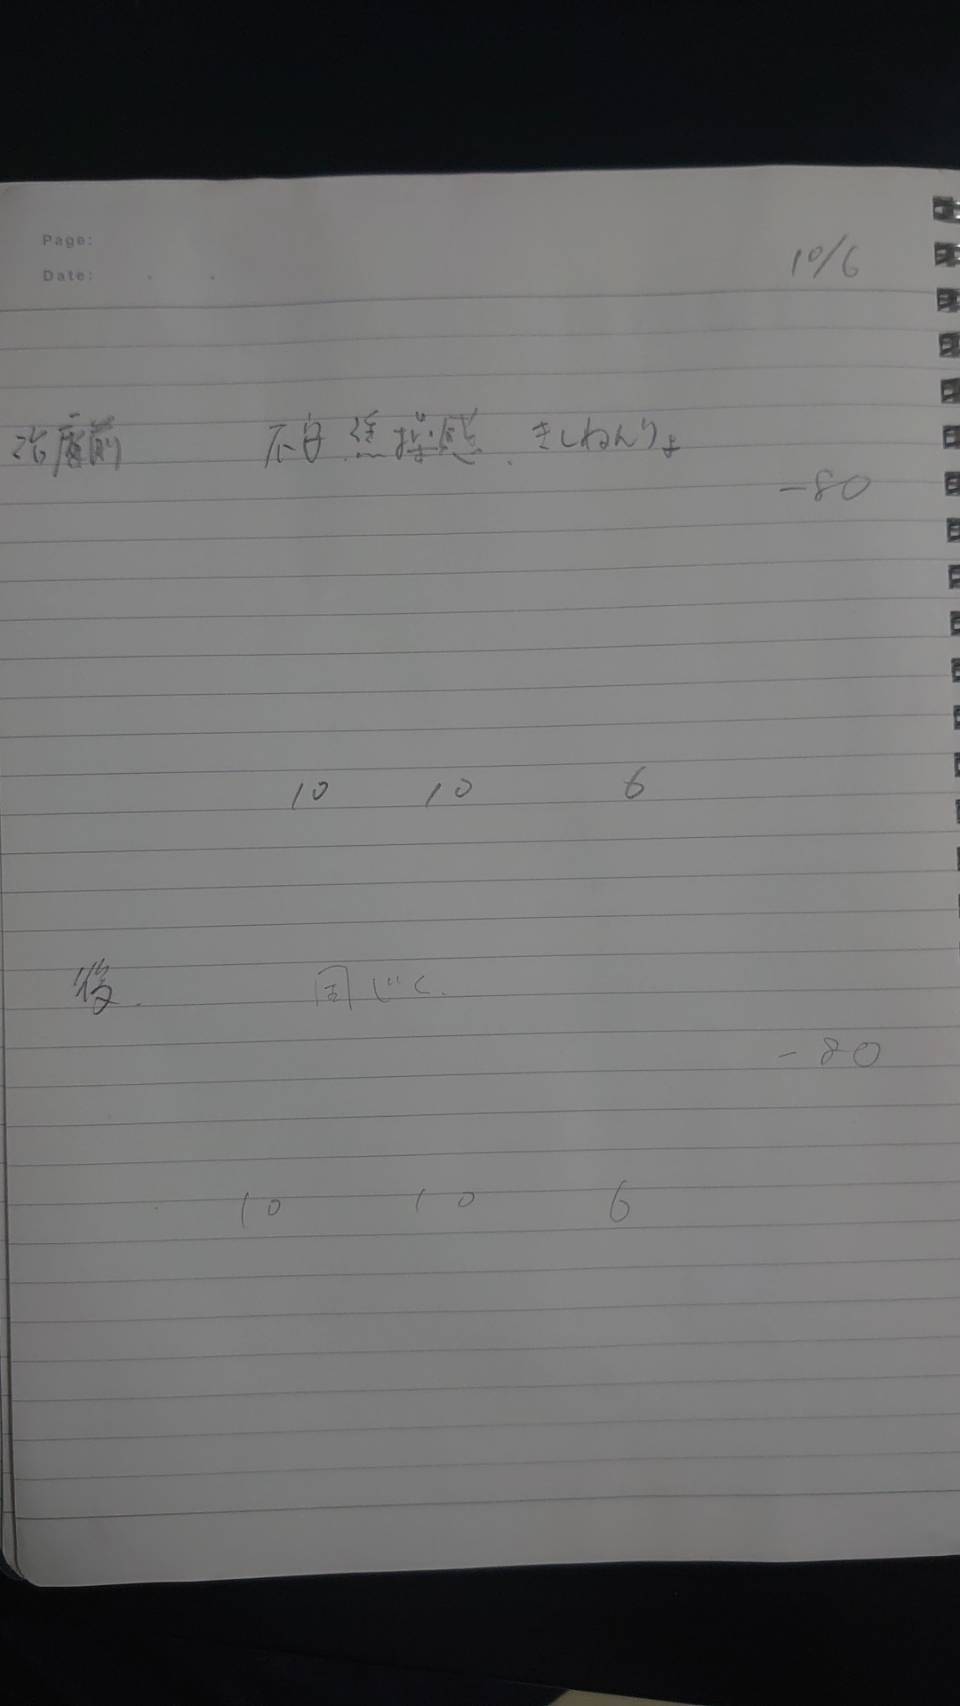 Page:
10/6
Date:
治療前 不安 焦操感、きしねんりょ
-80
10 10 6
後. 同じく.
-80
10 10 6